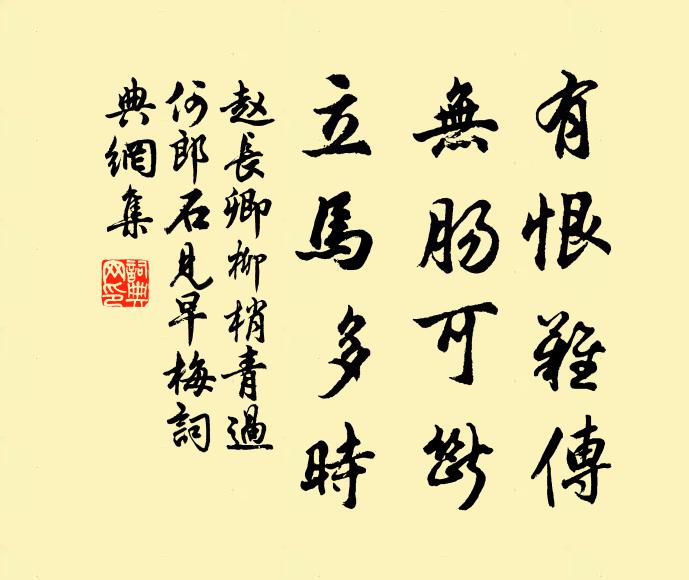 有恨難傳
無肠可斷
立馬多時
赵長卿柳梢青過
何郎石見早梅詞
典網集
詞典網印